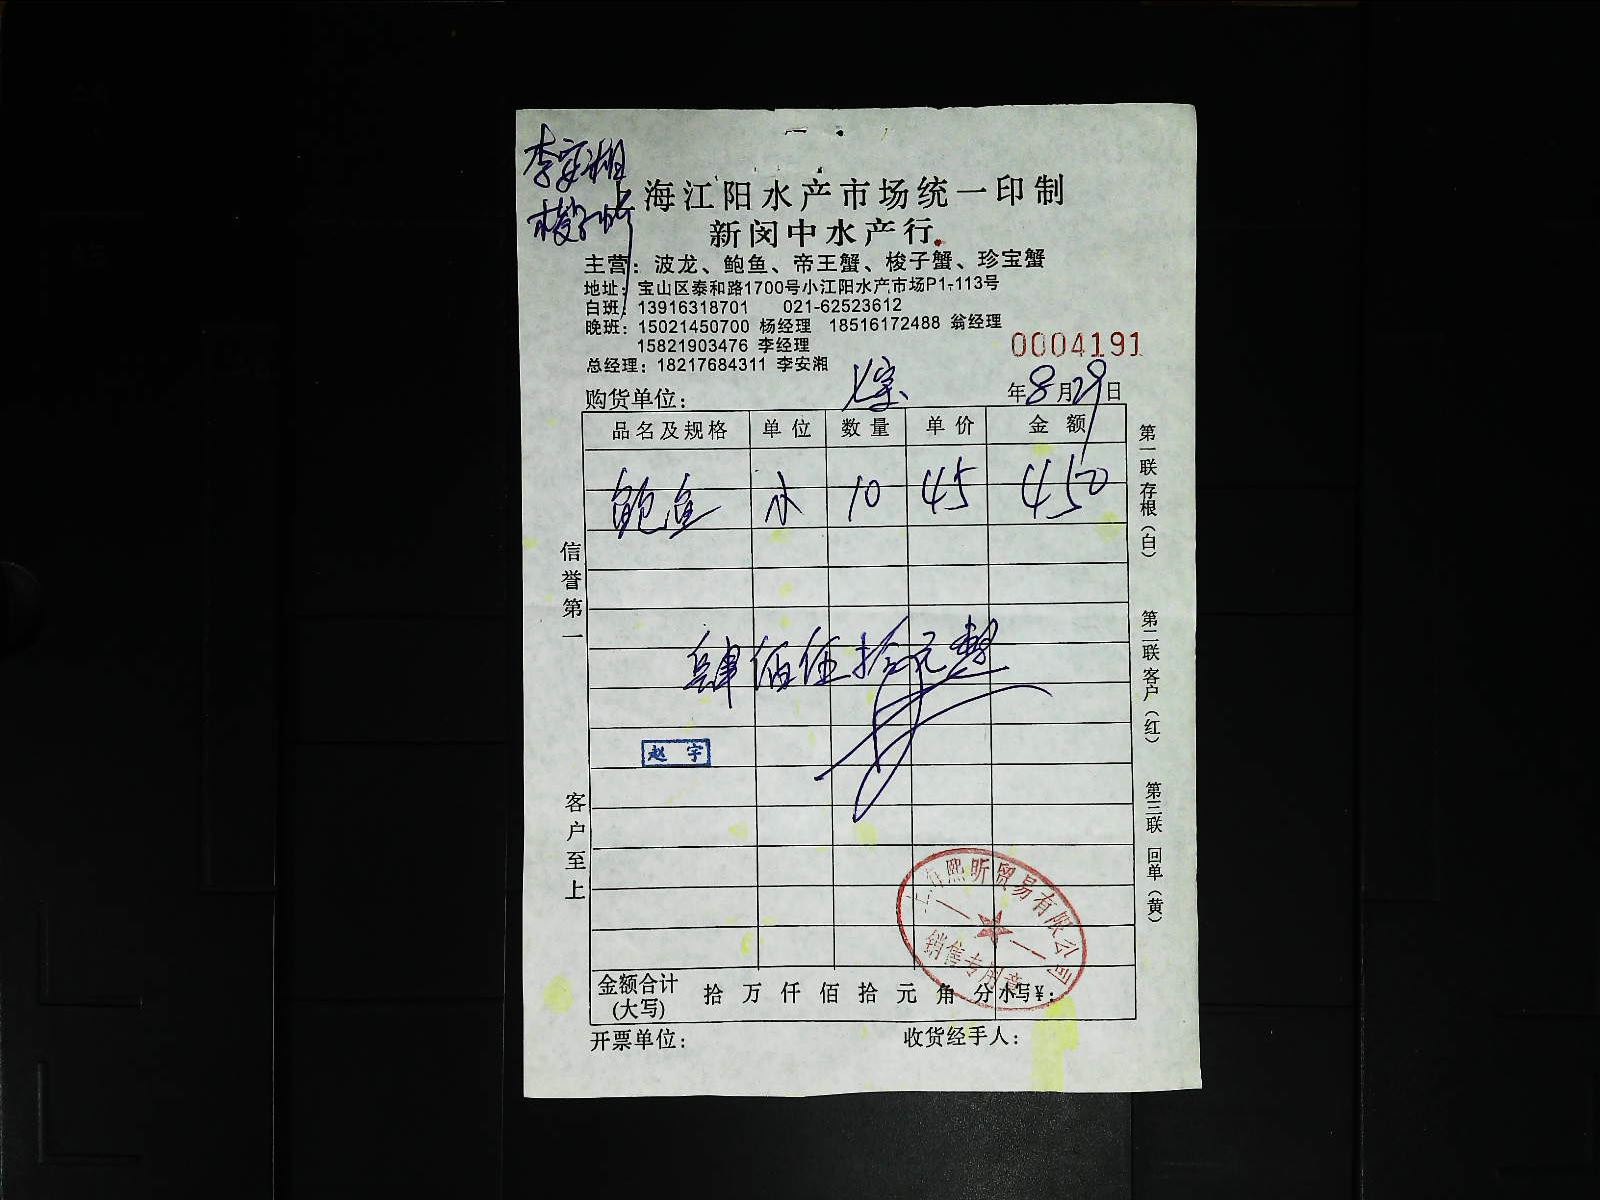 李安湘
梭子蟹
上海江阳水产市场统一印制
新闵中水产行
主营：波龙、鲍鱼、帝王蟹、梭子蟹、珍宝蟹
地址：宝山区泰和路1700号小江阳水产市场P1-113号
白班：13916318701 021-62523612
晚班：15021450700 杨经理 18516172488 翁经理
15821903476 李经理
0004191
总经理：18217684311 李安湘
购货单位：
年8月29日
品名及规格 单位 数量 单价 金额
鲍鱼 小 10 45 450
肆佰伍拾元整
赵宇
信誉第一
客户至上
第一联 存根（白）
第二联 客户（红）
第三联 回单（黄）
熙昕贸易有限公司
销售专用章
金额合计(大写) 拾 万 仟 佰 拾 元 角 分 小写¥：
开票单位： 收货经手人：